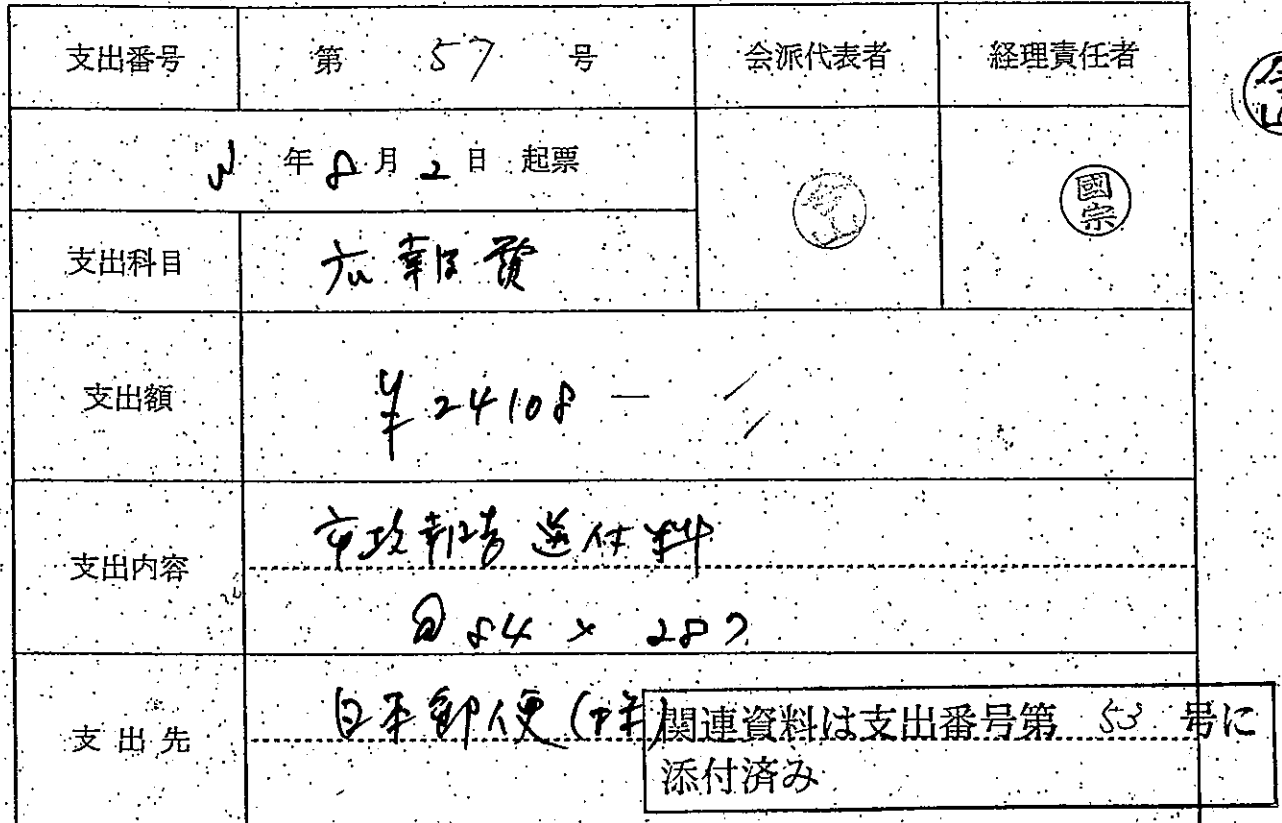 支出番号 第 57 号 会派代表者 経理責任者
年 8 月 2 日 起票
國宗
支出科目 広報費
支出額 ¥24108-
支出内容 市政報告送付料
@84×287
支出先 日本郵便(株)
関連資料は支出番号第 53 号に
添付済み